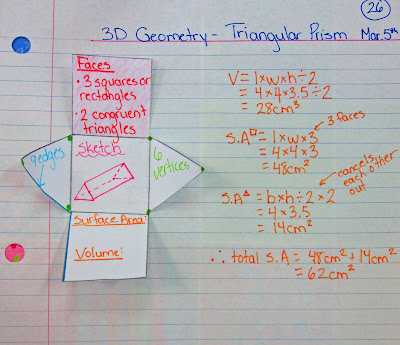 26
3D Geometry - Triangular Prism Mar. 5th
Faces
• 3 squares or
rectangles
• 2 congruent
triangles
9edges
Sketch
6
vertices
Surface Area:
Volume:
V = l×w×h÷2
= 4×4×3.5÷2
= 28cm³
S.A□ = l×w×3
3 faces
= 4×4×3
= 48cm²
S.A△ = b×h÷2×2
cancels
each other
out
= 4×3.5
= 14cm²
∴ total S.A = 48cm²+14cm²
= 62cm²